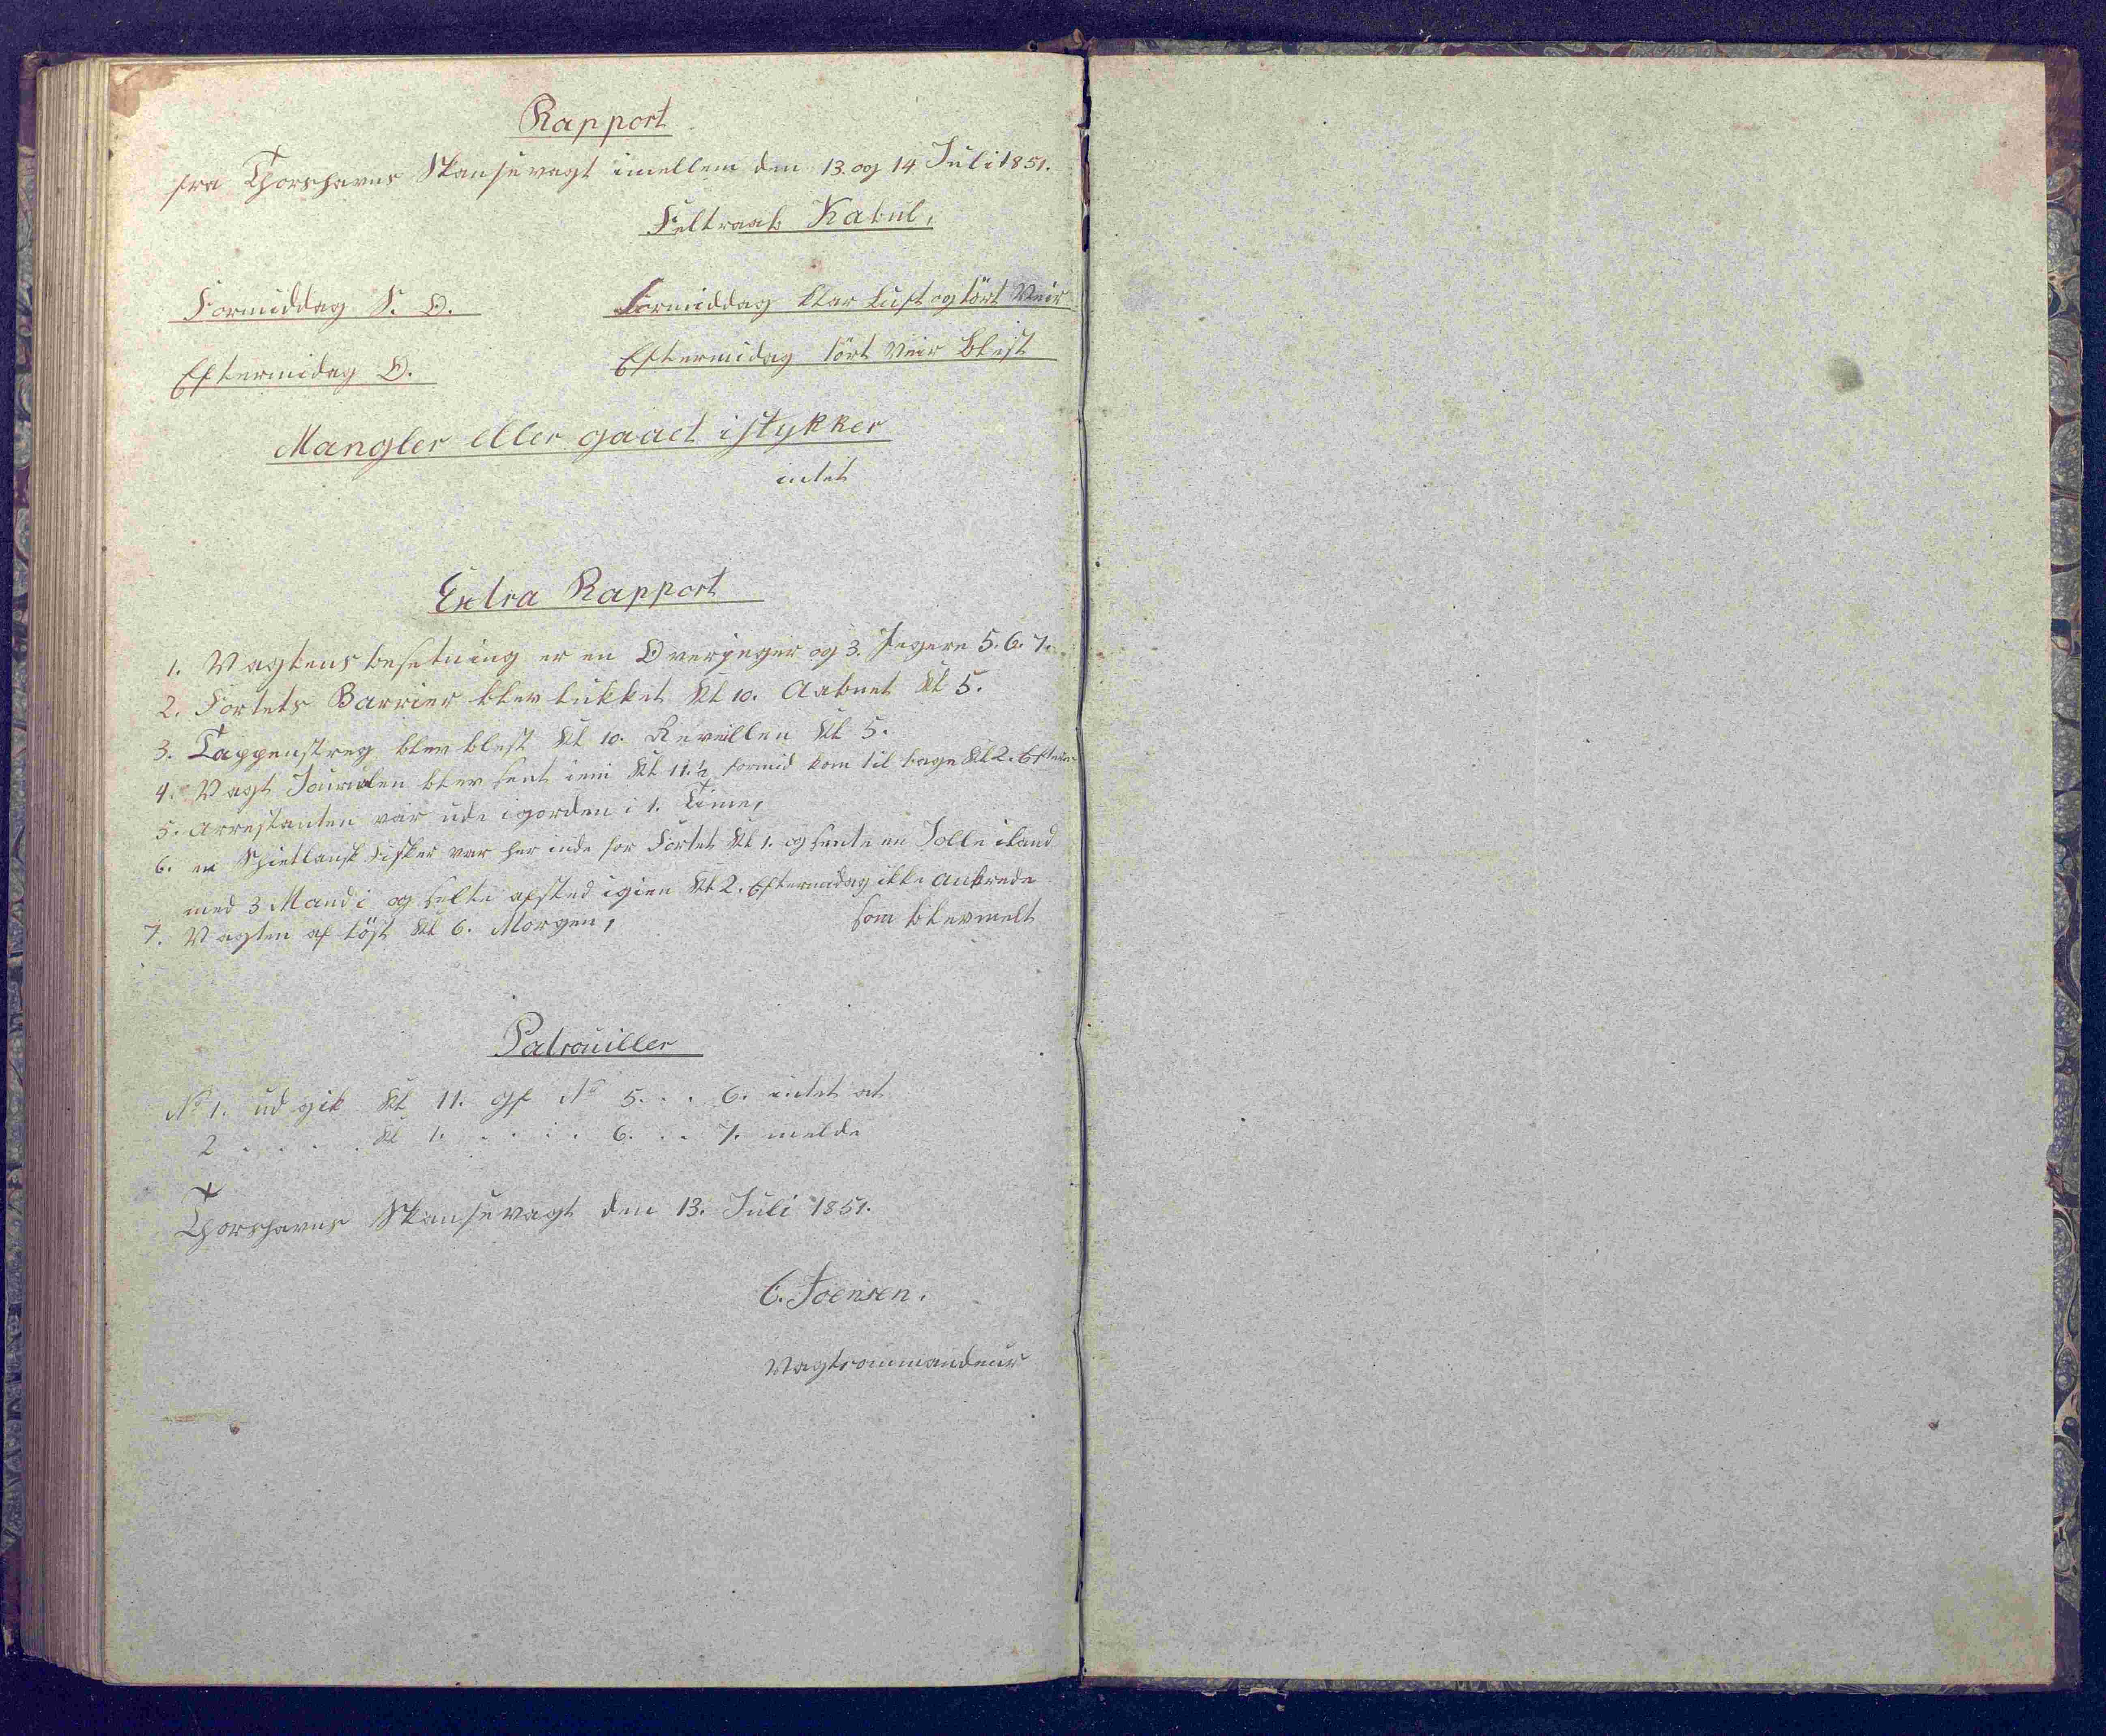 Rapport
fra Thorshavns Skansevagt imellem den 13. og 14 Juli 1851.
Feltraab Kabul,
Formiddag S. O.
Formiddag klar Luft og tört Veir
Eftermidag O.
Eftermidag tört Veir blest
Mangler eller gaaet istykker
intet
Extra Rapport
1. Vagtens besetning er en Overjeger og 3. Jegere 5. 6. 7.
2. Fortets Barrier blev lukket Kl 10. Aabnet Kl 5.
3. Tappenstreg blev blest Kl 10. Reveillen Kl 5.
4. Vagt Journalen blev sent ien Kl 11.½ formid kom til bage Kl 2. Efterm
5. Arrestanten var ude i gorden i 1. Time,
6. en Schietlansk Fisker var her inde for Fortet Kl 1. og sente en Jolle iland
med 3 Mand i og seilte afsted igien Kl 2. Eftermidag ikke ankrede
som blev melt
7. Vagten af löst Kl 6. Morgen,
Patrouiller
No 1. ud gik Kl 11. gf No 5. . . 6. intet at
2 . . . . . Kl 1. . . . . . 6. . . 7. melde
Thorshavns Skansevagt den 13. Juli 1851.
C. Joensen.
Vagtcommandeur